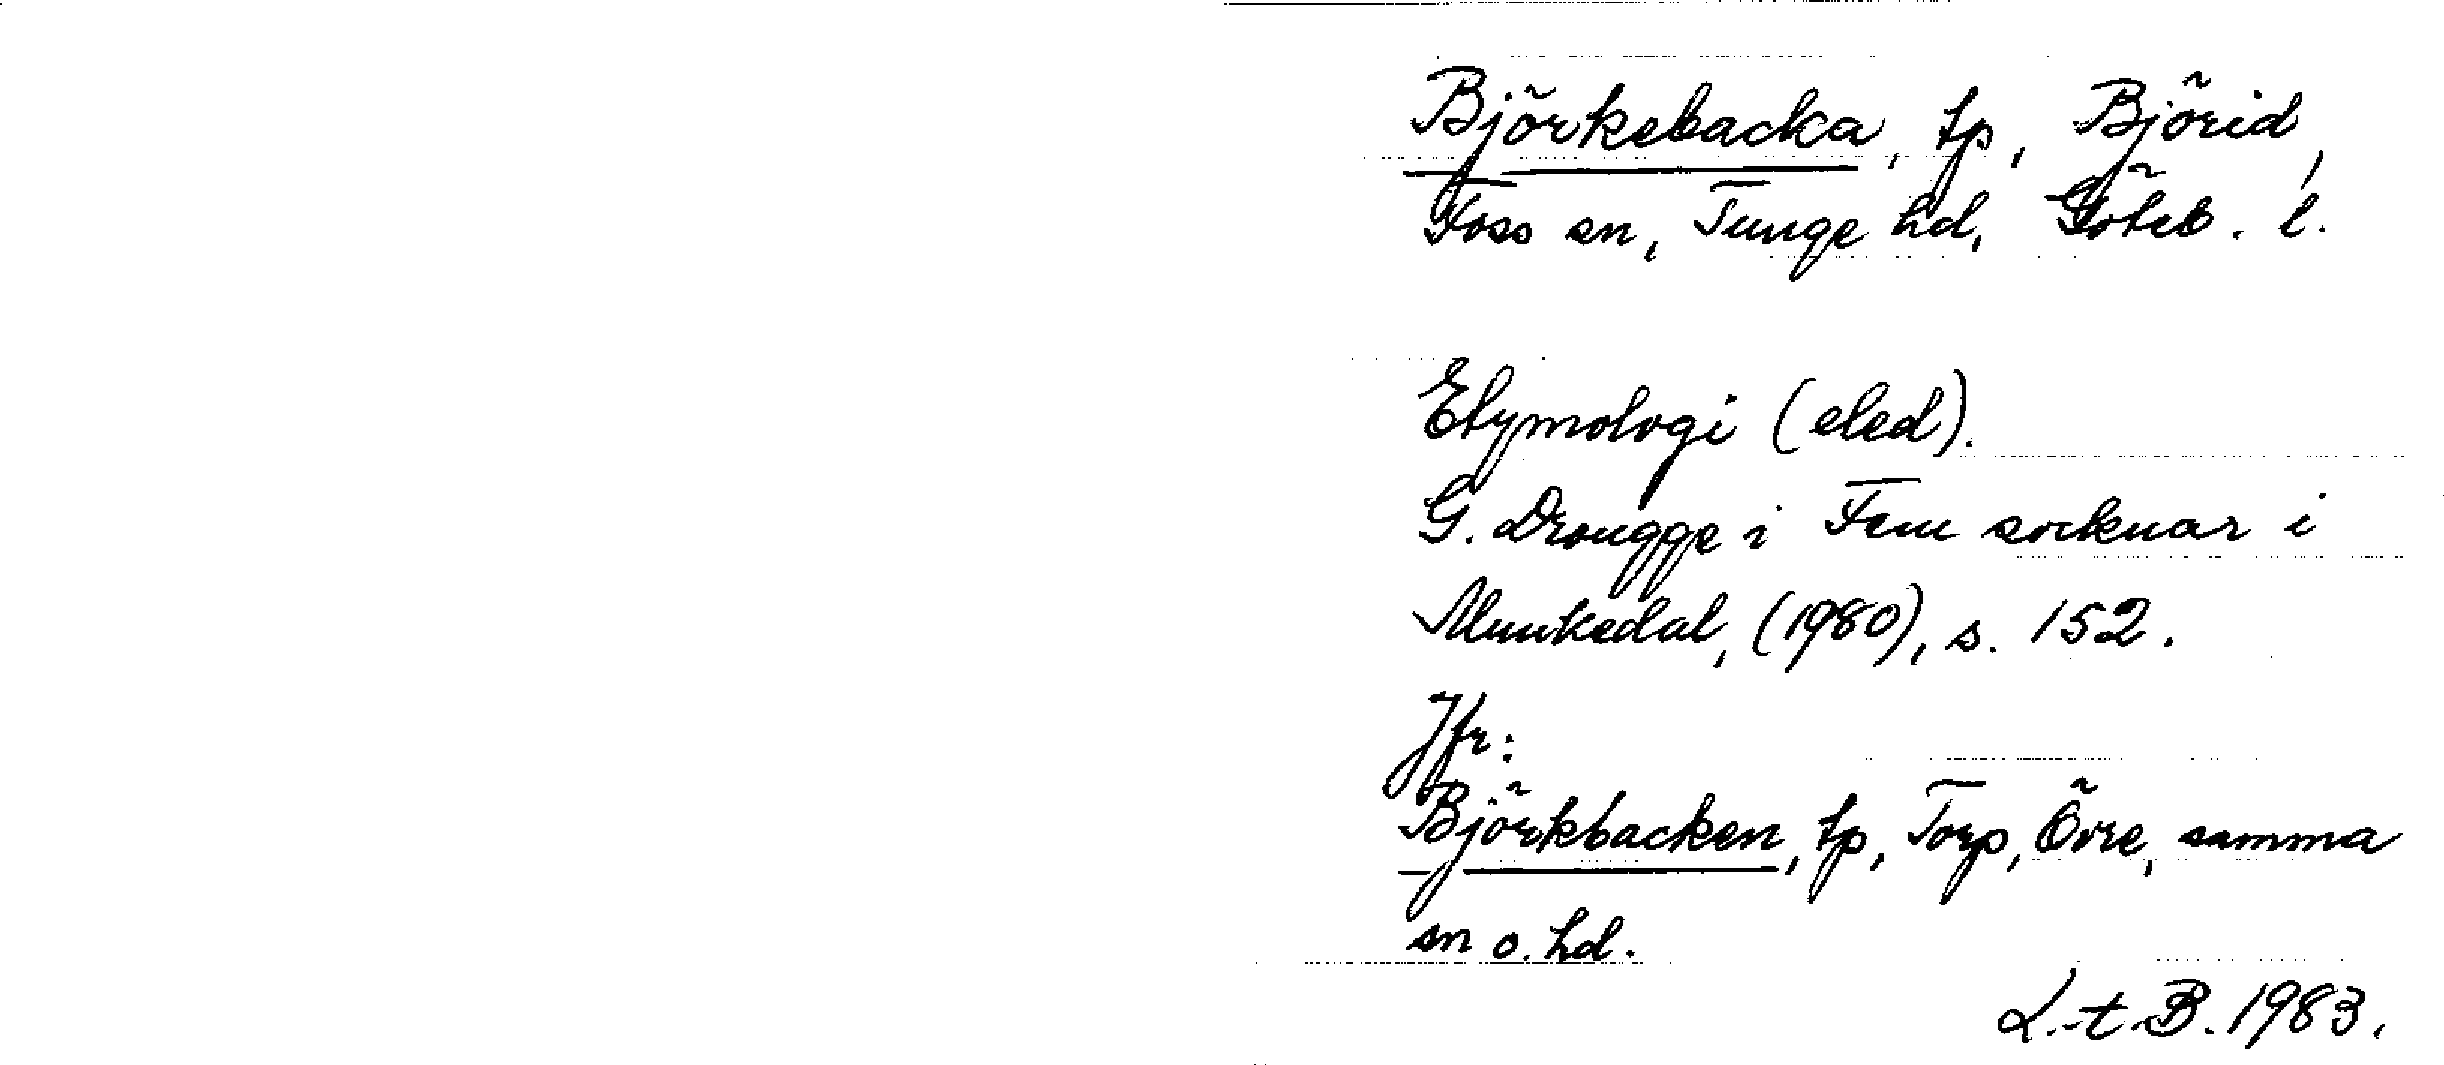 Björkebacka, tp, Björid,
Foss sn, Tunge hd, Göteb. l.
Etymologi (eled).
G. Drougge i Fem socknar i
Munkedal, (1980), s. 152.
Jfr:
Björkbacken, tp, Torp, Övre, samma
sn o. hd.
L.-t B. 1983.